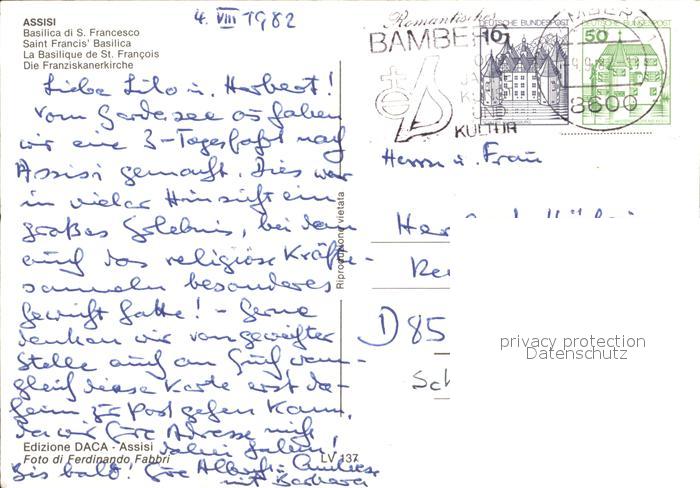 ASSISI
Basilica di S. Francesco
Saint Francis' Basilica
La Basilique de St. François
Die Franziskanerkirche
4. VIII 1982
Liebe Lilo u. Herbert!
Vom Gardasee aus haben
wir eine 3-Tagesfahrt nach
Assisi gemacht. Dies war
in vieler Hinsicht ein
großes Erlebnis, bei dem
auch das religiöse Kräfte-
sammeln besonderes
Gewicht hatte! - Gerne
denken wir von geweihter
Stelle auch an Euch wenn-
gleich diese Karte erst da-
heim zur Post gehen kann,
da wir Eure Adresse nicht
dabei haben!
Bis bald! Eure
mit Barbara
Edizione DACA - Assisi
Foto di Ferdinando Fabbri
LV 137
Riproduzione vietata
Romantisches
BAMBERG
KULTUR
DEUTSCHE BUNDESPOST
10
DEUTSCHE BUNDESPOST
50
8600
Herrn u. Frau
Her
D 85
Sch
privacy protection
Datenschutz